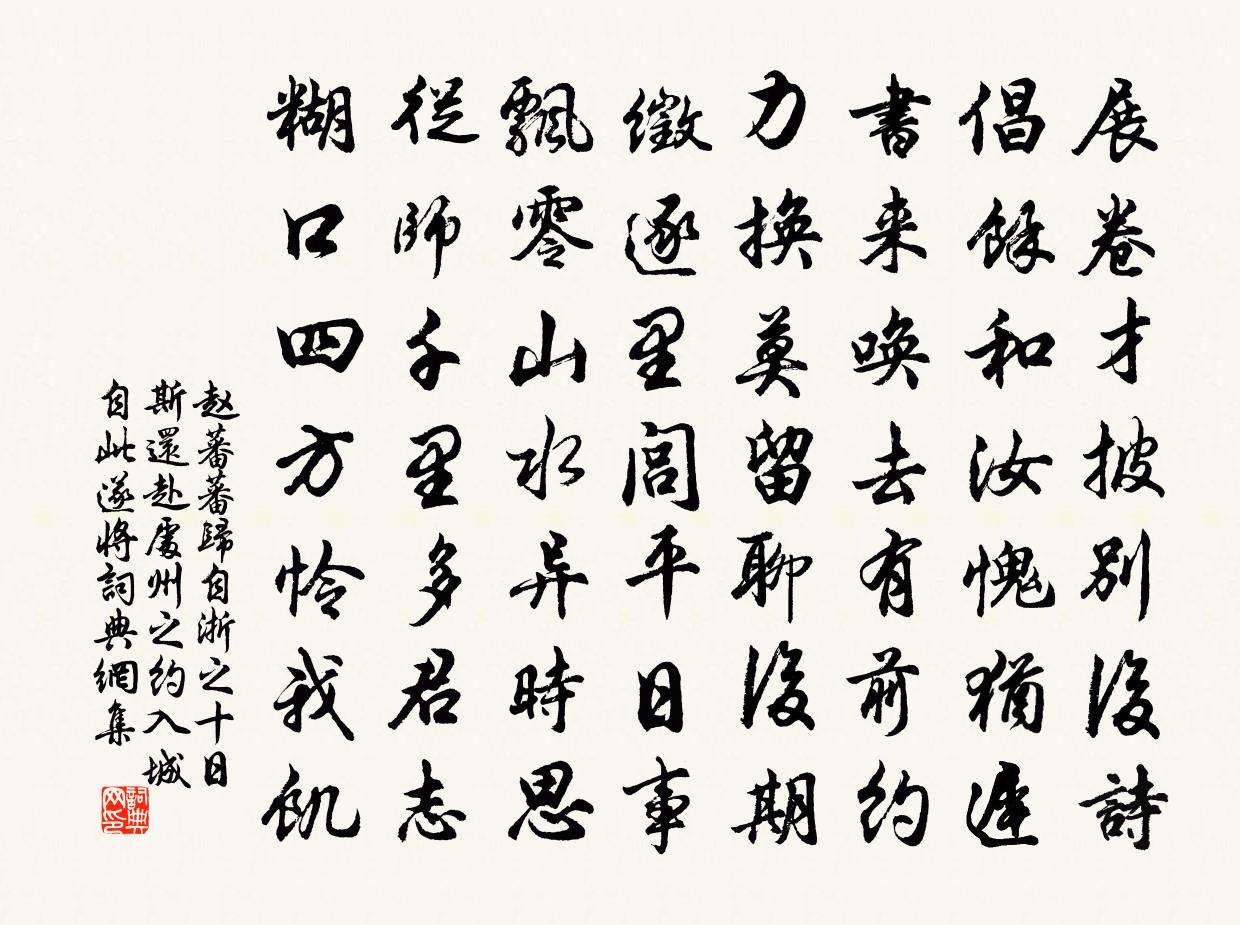 展卷才披別後詩
倡餘和汝愧猶遲
書来唤去有前約
力換莫留聊後期
徵逐里閭平日事
飄零山水异時思
從師千里多君志
糊口四方怜我飢
赵蕃蕃歸自浙之十日
斯還赴處州之約入城
自此遂將詞典網集
詞典网印